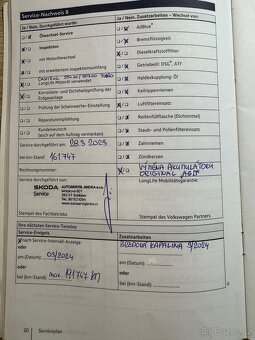 Service-Nachweis 8
Ja / Nein. Durchgeführt wurde:
Ölwechsel-Service
Inspektion
mit Motorölwechsel
mit erweitertem Inspektionsumfang
LongLife Motoröl verwendet
Korrosions- und Dichtheitsprüfung der Erdgasanlage
Prüfung der Scheinwerfer-Einstellung
Reparaturempfehlung
Kondenswasch
(sich auf dem Auftrag vermerken)
Service durchgeführt am: 28.3 2023
bei km-Stand: 161 747
Rechnungsnummer:
Service durchgeführt von:
ŠKODA
Service
Stempel des Fachbetriebs
Ja / Nein. Zusatzarbeiten – Wechsel von:
AdBlue®
Bremsflüssigkeit
Dieselkraftstofffilter
Getriebeöl: DSG®, ATF
Haldexkupplung: Öl
Keilrippenriemen
Luftfiltereinsatz
Reifenfüllflasche (Dichtmittel)
Staub- und Pollenfiltereinsatz
Zahnriemen
Zündkerzen
VÝMĚNA AKUMULÁTORU
ORIGINAL
LongLife Mobilitätsgarantie:
Stempel des Volkswagen Partners
Ihre nächsten Service-Termine
Service-Ereignis
nach Service-Intervall-Anzeige
oder
am (Datum): 03/2024
oder
bei (km-Stand): 191 747 KM
Zusatzarbeiten
BRZDOVÁ KAPALINA 3/2024
am (Datum):
oder
bei (km-Stand):
20 Serviceplan